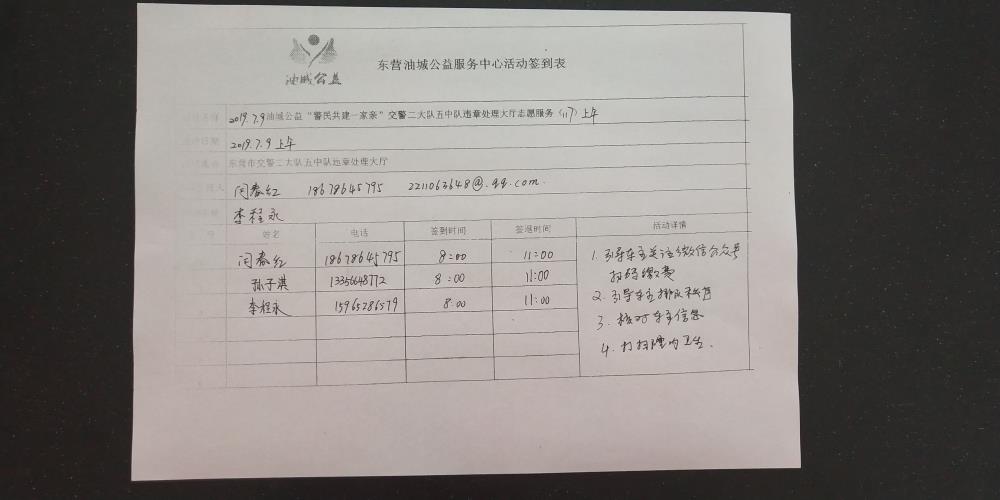 油城公益
东营油城公益服务中心活动签到表
2019.7.9油城公益“警民共建一家亲”交警二大队五中队违章处理大厅志愿服务（117）上午
日期 2019.7.9 上午
东营市交警二大队五中队违章处理大厅
人 闫春红 18678645795 2211063648@.qq.com.
李程永
号 姓名 电话 签到时间 签退时间 活动详情
闫春红 18678645795 8:00 11:00
孙子淇 13356648772 8:00 11:00
李程永 15965286579 8:00 11:00
1. 引导车主关注微信公众号
扫码缴费
2. 引导车主排队
3. 核对车主信息
4. 打扫厅内卫生.